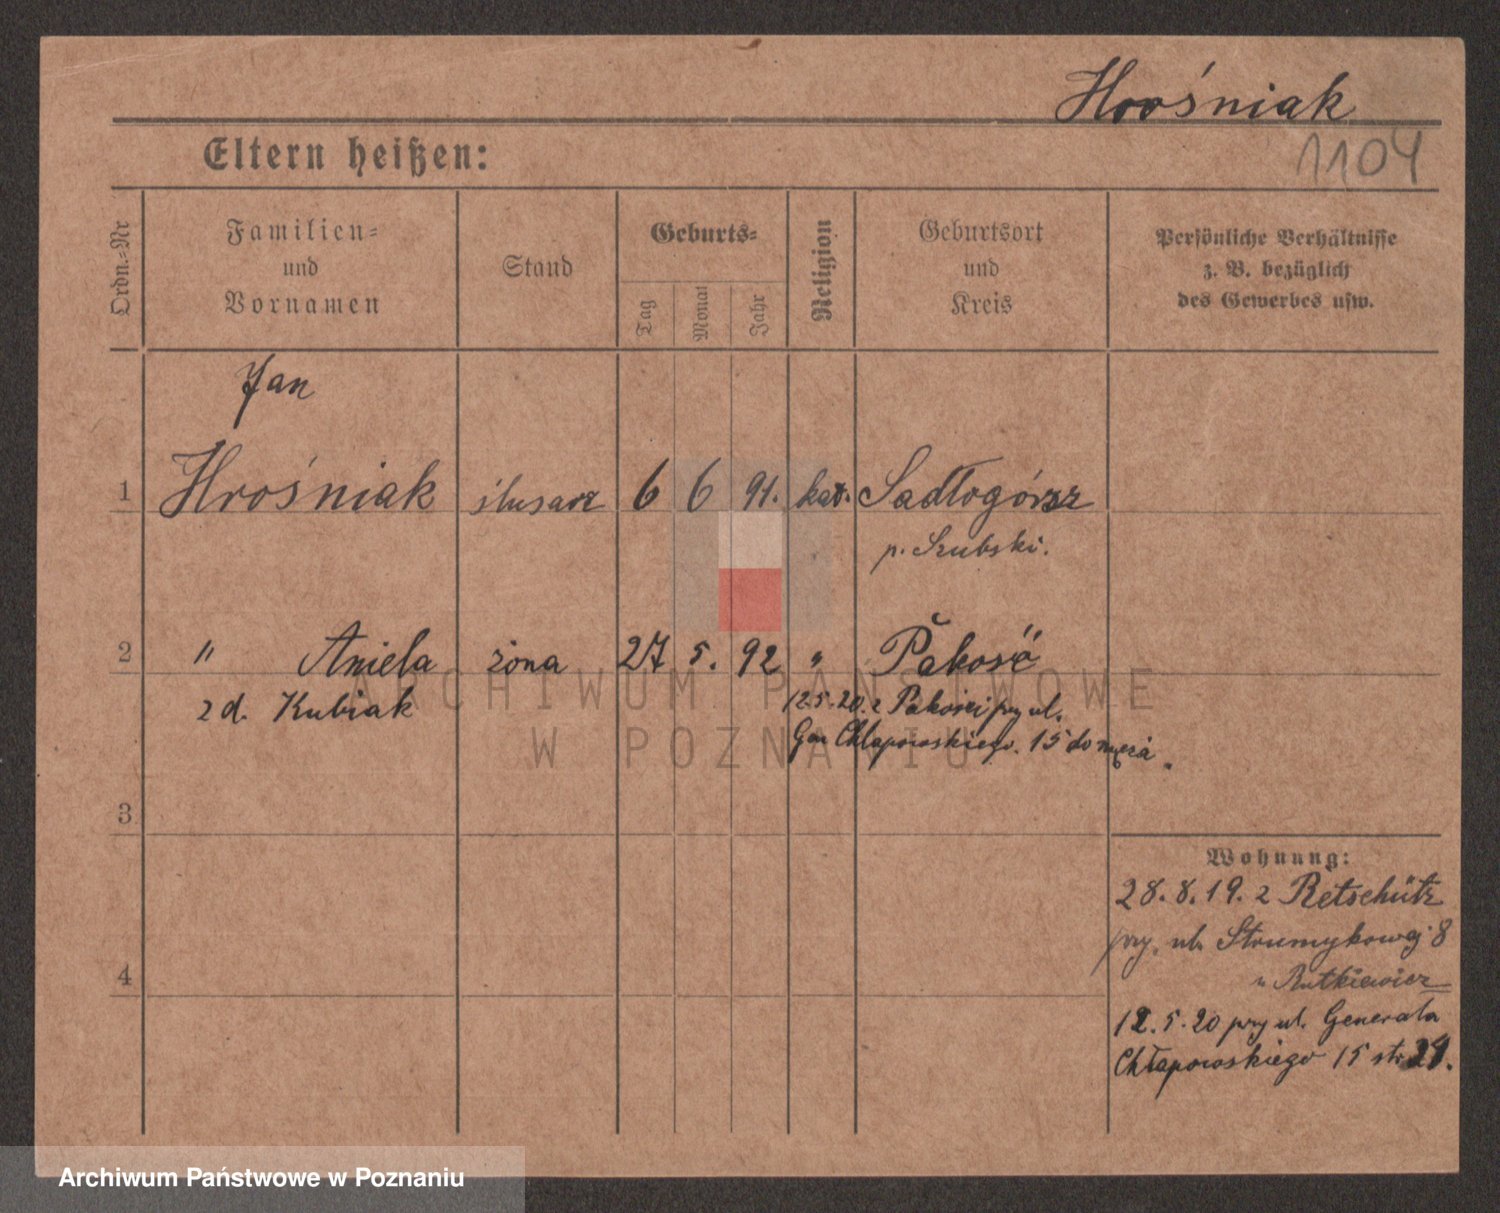 Hrośniak
Eltern heißen:
1104
Ordn.-Nr
Familien-
und
Vornamen
Stand
Geburts-
Tag
Monat
Jahr
Religion
Geburtsort
und
Kreis
Persönliche Verhältnisse
z. B. bezüglich
des Gewerbes usw.
Jan
1 Hrośniak ślusarz 6 6 91. kat. Sadłogószz
p. Szubski.
2 " Aniela żona 27 5. 92 " Pakość
z d. Kubiak
12.5.20. z Pakości przy ul.
Gen Chłapowskiego. 15 do męża.
3
4
Wohnung:
28.8.19. z Retschütz
przy. ul. Strumykowej 8
u Rutkiewicz
12.5.20 przy ul. Generała
Chłapowskiego 15 str.
ARCHIWUM PAŃSTWOWE
W POZNANIU
Archiwum Państwowe w Poznaniu